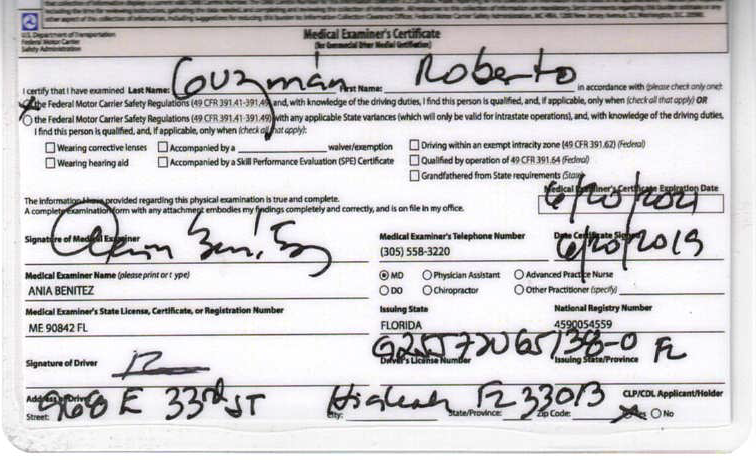 U.S. Department of Transportation
Federal Motor Carrier
Safety Administration
Medical Examiner's Certificate
(for Commercial Driver Medical Certification)
I certify that I have examined Last Name: Guzmán First Name: Roberto in accordance with (please check only one):
the Federal Motor Carrier Safety Regulations (49 CFR 391.41-391.49) and, with knowledge of the driving duties, I find this person is qualified, and, if applicable, only when (check all that apply) OR
the Federal Motor Carrier Safety Regulations (49 CFR 391.41-391.49) with any applicable State variances (which will only be valid for intrastate operations), and, with knowledge of the driving duties,
I find this person is qualified, and, if applicable, only when (check all that apply):
Wearing corrective lenses Accompanied by a waiver/exemption Driving within an exempt intracity zone (49 CFR 391.62) (Federal)
Wearing hearing aid Accompanied by a Skill Performance Evaluation (SPE) Certificate Qualified by operation of 49 CFR 391.64 (Federal)
Grandfathered from State requirements (State)
The information I have provided regarding this physical examination is true and complete.
A complete examination form with any attachment embodies my findings completely and correctly, and is on file in my office.
Medical Examiner's Certificate Expiration Date
6/20/2021
Signature of Medical Examiner
Medical Examiner's Telephone Number
(305) 558-3220
Date Certificate Signed
6/20/2019
Medical Examiner Name (please print or type)
ANIA BENITEZ
MD Physician Assistant Advanced Practice Nurse
DO Chiropractor Other Practitioner (specify)
Medical Examiner's State License, Certificate, or Registration Number
ME 90842 FL
Issuing State
FLORIDA
National Registry Number
4590054559
Signature of Driver
Driver's License Number
Issuing State/Province FL
Address of Driver
Street: 968 E 33rd ST City: Hialeah State/Province: FL Zip Code: 33013
CLP/CDL Applicant/Holder
Yes No